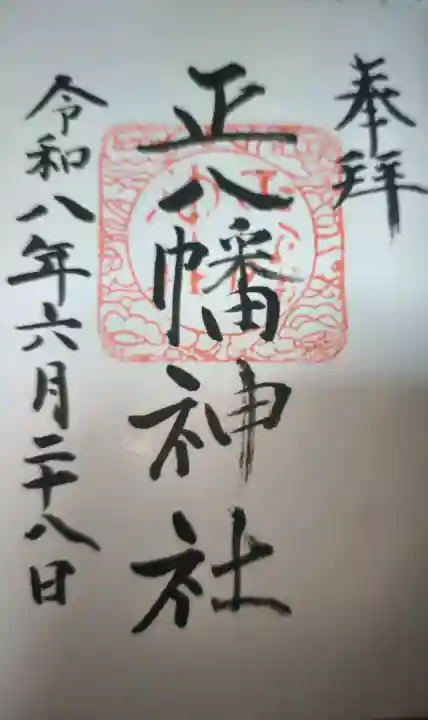 奉拝
正八幡神社
令和八年六月二十八日